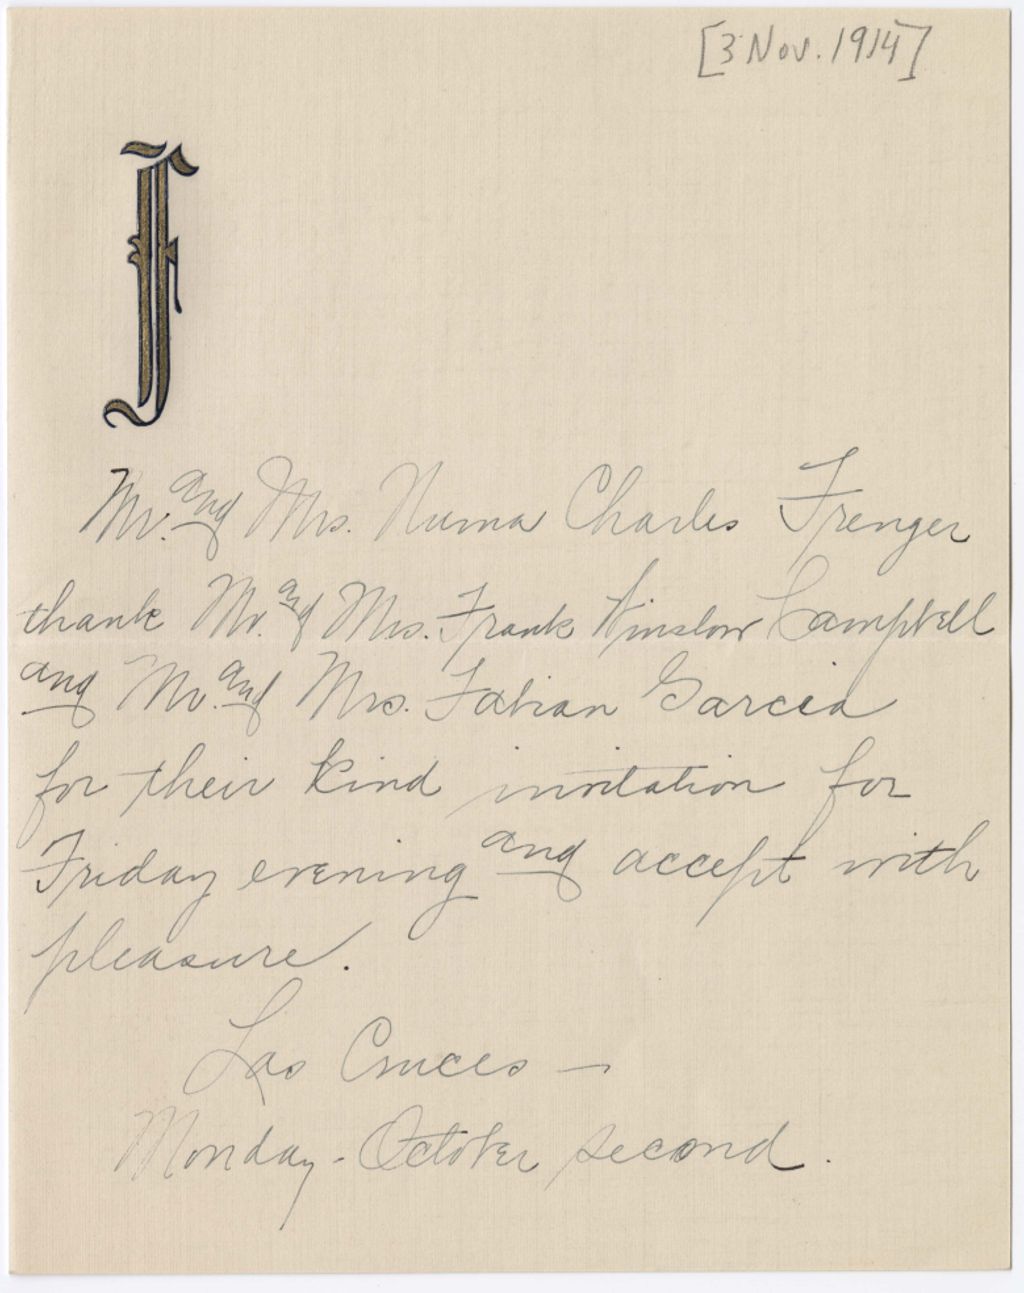 [3 Nov. 1914]
F
Mr. and Mrs. Numa Charles Frenger
thank Mr. and Mrs. Frank Winslow Campbell
and Mr. and Mrs. Fabian Garcia
for their kind invitation for
Friday evening and accept with
pleasure.
Las Cruces —
Monday - October second.